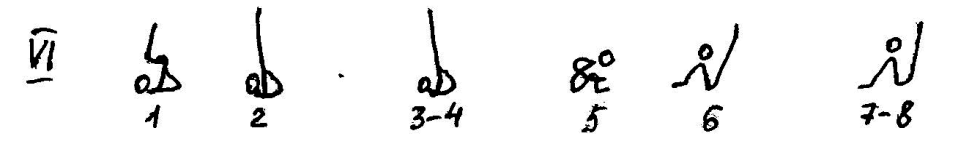 VI
1 2 3-4 5 6 7-8